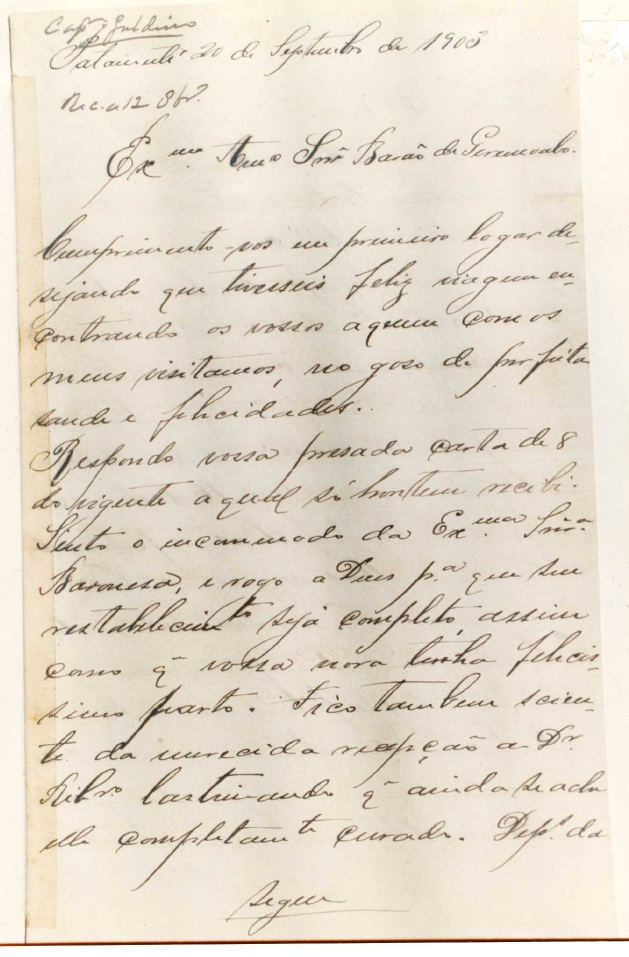 Cap.m Galdino
Patamuté 20 de Septembro de 1903
Rec. a 12 8br.
Ex.mo Am.o Snr. Barão de Geremoabo.
Cumprimento-vos em primeiro logar de-
sejando que tivesseis feliz viagem en-
contrando os vossos a quem com os
meus visitamos, no goso de perfeita
saude e felicidades.
Respondo vossa presada carta de 8
do vigente a qual só hontem recebi.
Sinto o incommodo da Ex.ma Snr.a
Baronesa, e rogo a Deus p.a que seu
restabelecim.to sejá completo, assim
como q̃ vossa nora tenha felicis-
simo parto. Fico tambem scien-
te da merecida recepção a Dr.
Rib.ro lastimando q̃ ainda se ache
elle completam.te curado. Dep.s da
segue